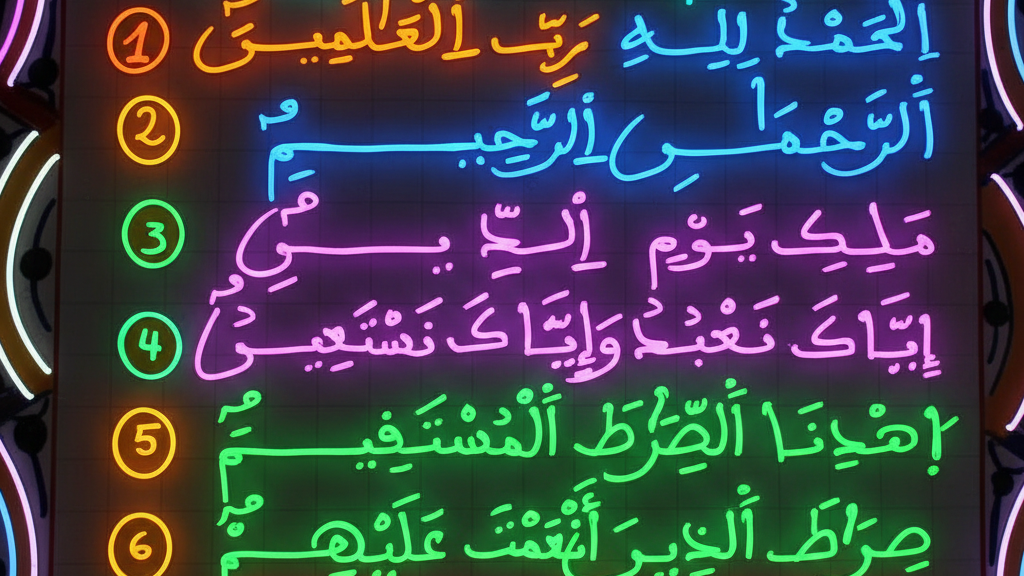 اَلْحَمْدُ لِلّٰهِ رَبِّ الْعٰلَمِيـنَ 1
اَلرَّحْمٰنِ الرَّحِيـمِ 2
مَلِكِ يَوْمِ 3
إِيَّاكَ نَعْبُدُ وَإِيَّاكَ نَسْتَعِيـنُ 4
اِهْدِنَا الصِّرَاطَ الْمُسْتَفِيـمَ 5
صِرَاطَ الَّذِيـنَ أَنْعَمْتَ عَلَيْهِـمْ 6